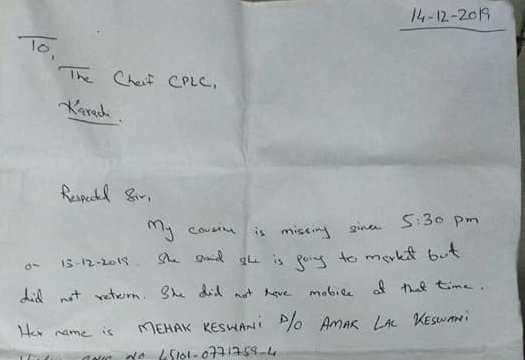 14-12-2019
To,
The Cheif CPLC,
Karachi.
Respected Sir,
My cousine is missing since 5:30 pm
on 13-12-2019. She said she is going to market but
did not return. She did not have mobile at that time.
Her name is MEHAK KESWANI D/O AMAR LAL KESWANI
CNIC NO 45101-0771759-4